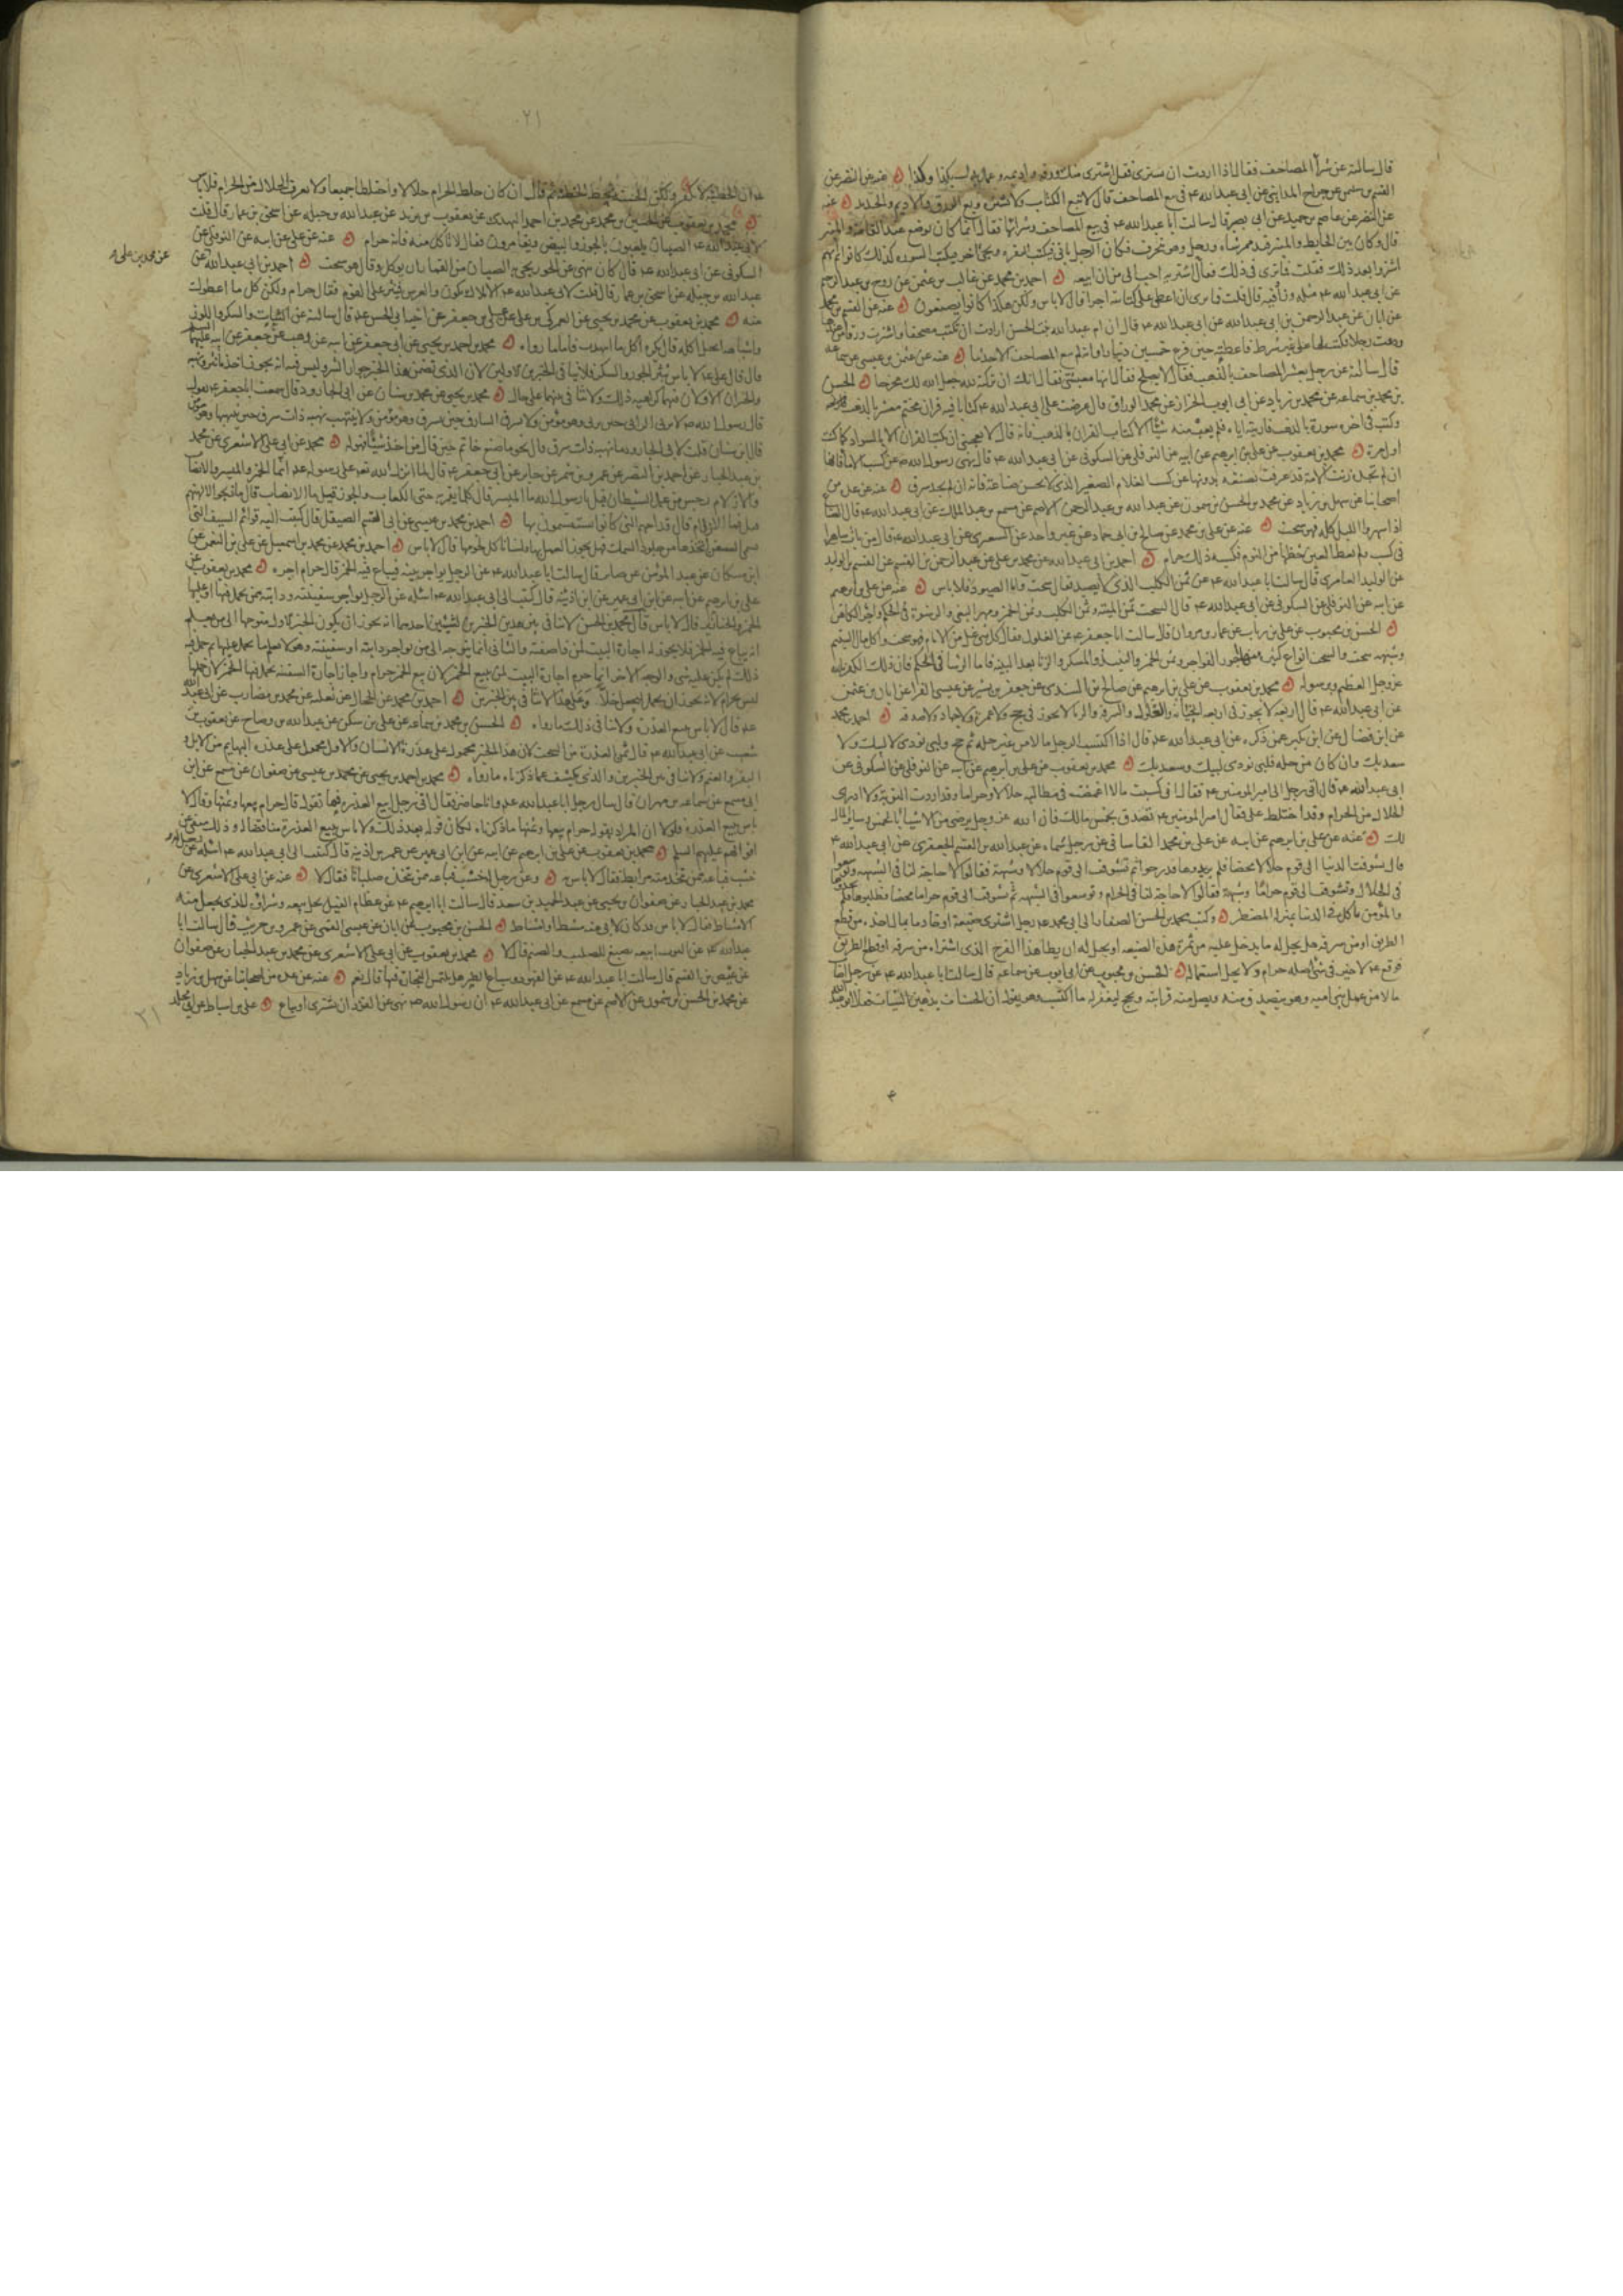 قال سالته عن شراء المصاحف فقال اذا اردت ان تشترى فقل اشترى منك ورقه واديمه وعمل يدك بكذا وكذا عنه عن النضر عن
القسم بن سليمن عن جراح المداينى عن ابى عبدالله ع فى بيع المصاحف قال لا تبع الكتاب ولا تشتره وبع الورق والاديم والحديد عنه
عن النضر عن عاصم بن حميد عن ابى بصير قال سالت ابا عبدالله ع عن بيع المصاحف وشرائها فقال انما كان يوضع عند القامة والمنبر
قال وكان بين الحايط والمنبر قدر ممر شاة ورجل وهو منحرف فكان الرجل ياتى فيكتب البقره ويجئ آخر فيكتب السوره كذلك كانوا ثم انهم
اشتروا بعد ذلك فقلت فما ترى فى ذلك فقال اشتريه احب الى من ان ابيعه احمد بن محمد عن غالب بن عثمن عن روح بن عبدالرحيم
عن ابى عبدالله ع مثله وزاد فيه قال قلت فما ترى ان اعطى على كتابته اجرا قال لا باس ولكن هكذا كانوا يصنعون عنه عن القسم بن محمد
عن ابان عن عبدالرحمن بن ابى عبدالله عن ابى عبدالله ع قال ان ام عبدالله بنت الحسن ارادت ان تكتب مصحفا واشترت ورقا من عندها
ودعت رجلا فكتب لها على غير شرط فاعطته حين فرغ خمسين دينارا وانه لم تبع المصاحف الا حديثا عنه عن عثمن بن عيسى عن سماعه
قال سالته عن رجل يعشر المصاحف بالذهب فقال لا يصلح فقال انها معيشتى فقال انك ان تركته لله جعل الله لك مخرجا الحسن
بن محمد بن سماعه عن محمد بن زياد عن ابى ايوب الخزاز عن محمد الوراق قال عرضت على ابى عبدالله ع كتابا فيه قران مختم معشر بالذهب
وكتب فى اخره سورة بالذهب فاريته اياه فلم يعب منه شيئا الا كتاب القران بالذهب فانه قال لا يعجبنى ان يكتب القران الا بالسواد كما كتب
اول مرة محمد بن يعقوب عن على بن ابرهيم عن ابيه عن النوفلى عن السكونى عن ابى عبدالله ع قال نهى رسول الله ص عن كسب الاماء فانها
ان لم تجد زنت الا امة قد عرفت بصنعة يد ونهى عن كسب الغلام الصغير الذى لا يحسن صناعة فانه ان لم يجد سرق عنه عن عدة من
اصحابنا عن سهل بن زياد عن محمد بن الحسن بن شمون عن عبدالله بن عبدالرحمن الاصم عن مسمع بن عبدالملك عن ابى عبدالله ع قال الصناع
اذا سهروا الليل كله فهو سحت عنه عن على بن محمد عن صالح بن ابى حماد عن غير واحد عن الشعيرى عن ابى عبدالله ع قال من بات ساهرا
فى كسب ولم يعط العين حظها من النوم فكسبه ذلك حرام احمد بن ابى عبدالله عن محمد بن على عن عبدالرحمن بن القسم عن القسم بن الوليد
عن الوليد العامرى قال سالت ابا عبدالله ع عن ثمن الكلب الذى لا يصيد فقال سحت واما الصيود فلا باس عنه عن على بن ابرهيم
عن ابيه عن النوفلى عن السكونى عن ابى عبدالله ع قال السحت ثمن الميتة وثمن الكلب وثمن الخمر ومهر البغى والرشوة فى الحكم واجر الكاهن
الحسن بن محبوب عن على بن رئاب عن عمار بن مروان قال سالت ابا جعفر ع عن الغلول فقال كل شئ غل من الامام فهو سحت واكل مال اليتيم
وشبهه سحت والسحت انواع كثيره منها اجور الفواجر وثمن الخمر والنبيذ والمسكر والربا بعد البينه فاما الرشا فى الحكم فان ذلك الكفر بالله
عز وجل العظيم وبرسوله محمد بن يعقوب عن على بن ابرهيم عن صالح بن السندى عن جعفر بن بشير عن عيسى الفراء عن ابان بن عثمن
عن ابى عبدالله ع قال اربعه لا يجوز فى اربعه الخيانه والغلول والسرقه والربا لا يجوز فى حج ولا عمره ولا جهاد ولا صدقه احمد بن محمد
عن ابن فضال عن ابن بكير عمن ذكره عن ابى عبدالله ع قال اذا اكتسب الرجل مالا من غير حله ثم حج ولبى نودى لا لبيك ولا
سعديك وان كان من حله فلبى نودى لبيك وسعديك محمد بن يعقوب عن على بن ابرهيم عن ابيه عن النوفلى عن السكونى عن
ابى عبدالله ع قال اتى رجل الى امير المومنين ع فقال انى كسبت مالا اغمضت فى مطالبه حلالا وحراما وقد اردت التوبة ولا ادرى
الحلال من الحرام وقد اختلط على فقال امير المومنين ع تصدق بخمس مالك فان الله عز وجل رضى من الاشياء بالخمس وساير المال
لك عنه عن على بن ابرهيم عن ابيه عن على بن محمد القاسانى عن رجل سماه عن عبدالله بن القسم الجعفرى عن ابى عبدالله ع
قال تشوفت الدنيا الى قوم حلالا محضا فلم يريدوها فدرجوا ثم تشوفت الى قوم حلالا وشبهة فقالوا لا حاجة لنا فى الشبهه وتوسعوا
فى الحلال وتشوفت الى قوم حراما وشبهة فقالوا لا حاجة لنا فى الحرام وتوسعوا فى الشبهه ثم تشوفت الى قوم حراما محضا فطلبوها فلم يجدوها
والمؤمن ياكل فى الدنيا بمنزلة المضطر وكتب محمد بن الحسن الصفار الى ابى محمد ع رجل اشترى ضيعة او خادما بمال اخذه من قطع
الطريق او من سرقه هل يحل له ما يدخل عليه من ثمرة هذه الضيعه او يحل له ان يطا هذا الفرج الذى اشتراه من سرقه او قطع الطريق
فوقع ع لا خير فى شئ اصله حرام ولا يحل استعماله الحسن بن محبوب عن ابى ايوب عن سماعه قال سالت ابا عبدالله ع عن رجل اصاب
مالا من عمل بنى اميه وهو يتصدق منه ويصل منه قرابته ويحج ليغفر له ما اكتسب وهو يقول ان الحسنات يذهبن السيئات فقال ابو عبدالله
٢١
ع ان الخطيئة لا تكفر ولكن الحسنة تحط الخطيئة ثم قال ان كان خلط الحرام حلالا واختلطا جميعا ولا يعرف الحلال من الحرام فلا باس
محمد بن يعقوب عن الحسين بن محمد عن محمد بن احمد النهدى عن يعقوب بن يزيد عن عبدالله بن جبله عن اسحق بن عمار قال قلت
لابى عبدالله ع الصبيان يلعبون بالجوز والبيض ويقامرون فقال لا تاكل منه فانه حرام عنه عن على عن ابيه عن النوفلى عن
السكونى عن ابى عبدالله ع قال كان ينهى عن الجوز يجئ به الصبيان من القمار ان يوكل وقال هو سحت احمد بن ابى عبدالله عن
عن محمد بن على
عبدالله بن جبله عن اسحق بن عمار قال قلت لابى عبدالله ع الاملاك يكون والعرس فينثر على القوم فقال حرام ولكن كل ما اعطوك
منه محمد بن يعقوب عن محمد بن يحيى عن العمركى بن على عن على بن جعفر عن اخيه ابى الحسن ع قال سالته عن النثار من السكر واللوز
واشباهه ايحل اكله قال يكره اكل ما انتهب فاما ما رواه محمد بن احمد بن يحيى عن ابى جعفر عن ابيه عن وهب عن جعفر عن ابيه عليهما السلام
قال قال على ع لا باس بنثر الجوز والسكر فلا ينافى الخبرين الاولين لان الذى تضمن هذا الخبر جواز النثر وليس فيه انه يجوز اخذه
والخبران الاولان فيهما كراهيه ذلك ولا تنافى بينهما على حال محمد بن يحيى عن محمد بن سنان عن ابى الجارود قال سمعت ابا جعفر ع يقول
قال رسول الله ص لا يزنى الزانى حين يزنى وهو مؤمن ولا يسرق السارق حين يسرق وهو مؤمن ولا ينتهب نهبه ذات سرف حين ينهبها وهو مؤمن
قال ابن سنان قلت لابى الجارود وما نهبه ذات سرف قال نحو ما صنع حاتم حين قال من اخذ شيئا فهو له محمد عن ابى على الاشعرى عن محمد
بن عبدالجبار عن احمد بن النضر عن عمرو بن شمر عن جابر عن ابى جعفر ع قال لما انزل الله تع على رسوله ص انما الخمر والميسر والانصاب
والازلام رجس من عمل الشيطان قيل يا رسول الله ما الميسر قال كل ما تقومر به حتى الكعاب والجوز قيل ما الانصاب قال ما ذبحوا لالهتهم
قيل فما الازلام قال قداحهم التى كانوا يستقسمون بها احمد بن محمد بن عيسى عن ابى القسم الصيقل قال كتبت اليه قوائم السيوف التى
تسمى السفن اتخذها من جلود السمك فهل يجوز العمل بها ولسنا ناكل لحومها قال لا باس احمد بن محمد عن محمد بن اسمعيل عن على بن النعمن عن
ابن مسكان عن عبد المؤمن عن صابر قال سالت ابا عبدالله ع عن الرجل يواجر بيته فيباع فيه الخمر قال حرام اجره محمد بن يعقوب عن
على بن ابرهيم عن ابيه عن ابن ابى عمير عن ابن اذينه قال كتبت الى ابى عبدالله ع اسئله عن الرجل يواجر سفينته ودابته ممن يحمل فيها او عليها
الخمر والخنازير قال لا باس قال محمد بن الحسن لا تنافى بين هذين الخبرين لشيئين احدهما انه يجوز ان يكون الخبر الاول متوجها الى من يعلم
انه يباع فيه الخمر فلا يجوز له اجارة البيت لمن هذا صفته والثانى انما يتوجه الى من يواجر دابته او سفينته وهو لا يعلم ما يحمل عليها او يحمل فيه
ذلك لم يكن عليه شئ والوجه الاخر انما حرم اجارة البيت لمن يبيع الخمر لان بيع الخمر حرام واجاز اجارة السفينه يحمل فيها الخمر لان حملها
ليس بحرام لانه يجوز ان يحمل ليجعل خلا وعلى هذا لا تنافى بين الخبرين احمد بن محمد عن الحجال عن ثعلبه عن محمد بن مضارب عن ابى عبدالله
ع قال لا باس ببيع العذرة ولا ينافى ذلك ما رواه الحسن بن محمد بن سماعه عن على بن سكن عن عبدالله بن وضاح عن يعقوب بن
شعيب عن ابى عبدالله ع قال ثمن العذرة من السحت لان هذا الخبر محمول على عذرة الانسان والاول محمول على عذرة البهايم من الابل و
البقر والغنم ولا تنافى بين الخبرين والذى يكشف عما ذكرناه ما رواه محمد بن احمد بن يحيى عن محمد بن عيسى عن صفوان عن مسمع عن ابن
ابى مسمع عن سماعه بن مهران قال سال رجل ابا عبدالله ع وانا حاضر فقال انى رجل ابيع العذرة فما تقول قال حرام بيعها وثمنها وقال لا
باس ببيع العذرة فلولا ان المراد بقوله حرام بيعها وثمنها ما ذكرناه لكان قوله بعد ذلك ولا باس ببيع العذرة مناقضا له وذلك منفى عن
اقوالهم عليهم السلم محمد بن يعقوب عن على بن ابرهيم عن ابيه عن ابن ابى عمير عن عمر بن اذينه قال كتبت الى ابى عبدالله ع اسئله عن رجل له
خشب فباعه ممن يتخذ منه برابط فقال لا باس وعن رجل له خشب فباعه ممن يتخذه صلبانا فقال لا عنه عن ابى على الاشعرى عن
محمد بن عبدالجبار عن صفوان بن يحيى عن عبدالحميد بن سعد قال سالت ابا ابرهيم ع عن عظام الفيل يحل بيعه وشراؤه للذى يجعل منه
الامشاط فقال لا باس قد كان لابى منه مشط او امشاط الحسن بن محبوب عن ابان عن عيسى القمى عن عمرو بن حريث قال سالت ابا
عبدالله ع عن التوت ابيعه يصنع للصليب والصنم قال لا محمد بن يعقوب عن ابى على الاشعرى عن محمد بن عبدالجبار عن صفوان
عن عيص بن القسم قال سالت ابا عبدالله ع عن الفهود وسباع الطير هل يلتمس التجارة فيها قال نعم عنه عن عدة من اصحابنا عن سهل بن زياد
عن محمد بن الحسن بن شمون عن الاصم عن مسمع عن ابى عبدالله ع ان رسول الله ص نهى عن القرد ان يشترى او يباع على بن اسباط عن ابى مخلد
٢١